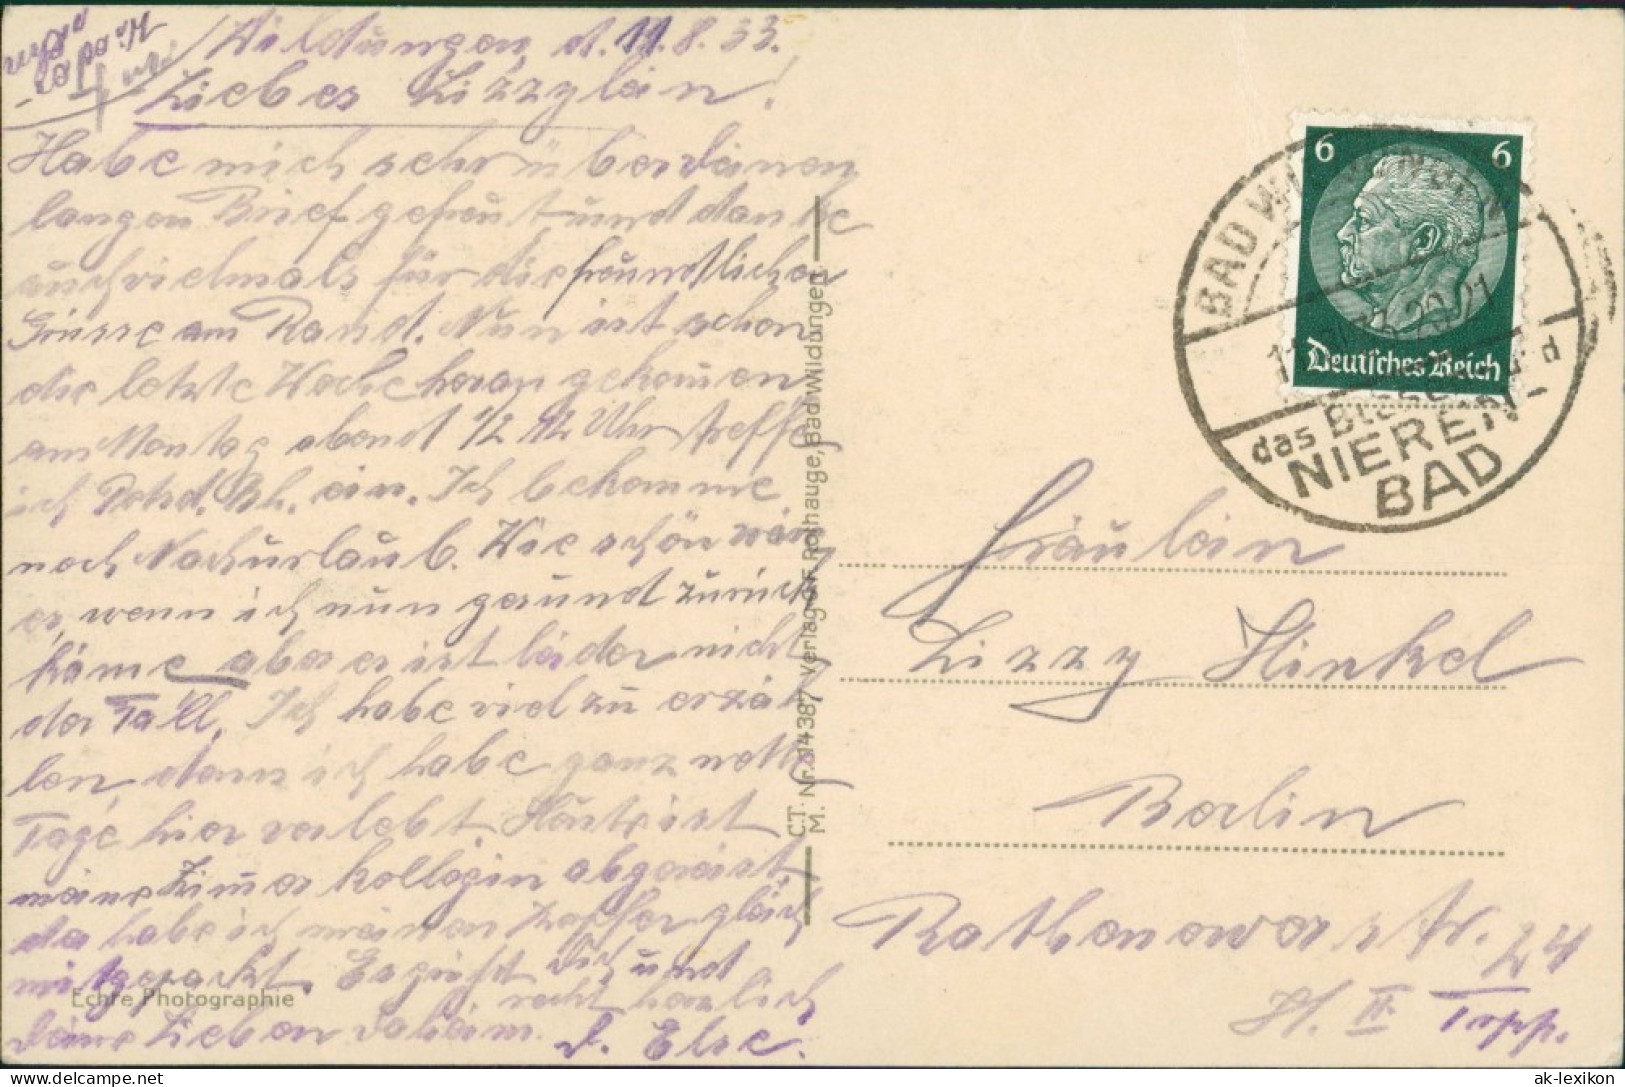 Wildungen, d. 11.8.33.
Liebes Lizzylein!
Habe mich sehr über Deinen
langen Brief gefreut und danke
auch vielmals für die freundlichen
Grüsse am Rand. Nun ist schon
die letzte Woche heran gekommen
am Montag abend 1/2 12 Uhr treffe
ich Potsd. Bh. ein. Ich bekomme
noch Nachurlaub. Wie schön wäre
es, wenn ich nun gesund zurück
käme aber es ist leider nicht
der Fall. Ich habe viel zu erzäh
len, denn ich habe ganz nette
Tage hier verlebt. Heute ist
meine Zimmerkollegin abgereist,
da habe ich meinen Koffer gleich
mitgepackt. Es grüßt Dich und
recht herzlich
Deine Lieben daheim. D. Else.
Echte Photographie
C.T.
M. Nr. 14387 Verlag Rothauge, Bad Wildungen
6 6
Deutsches Reich
BAD WILDUNGEN
20-21
d
das
NIEREN-
BAD
Fräulein
Lizzy Hinkel
Berlin
Rathenowerstr. 24
H. II Trpp.
ak-lexikon